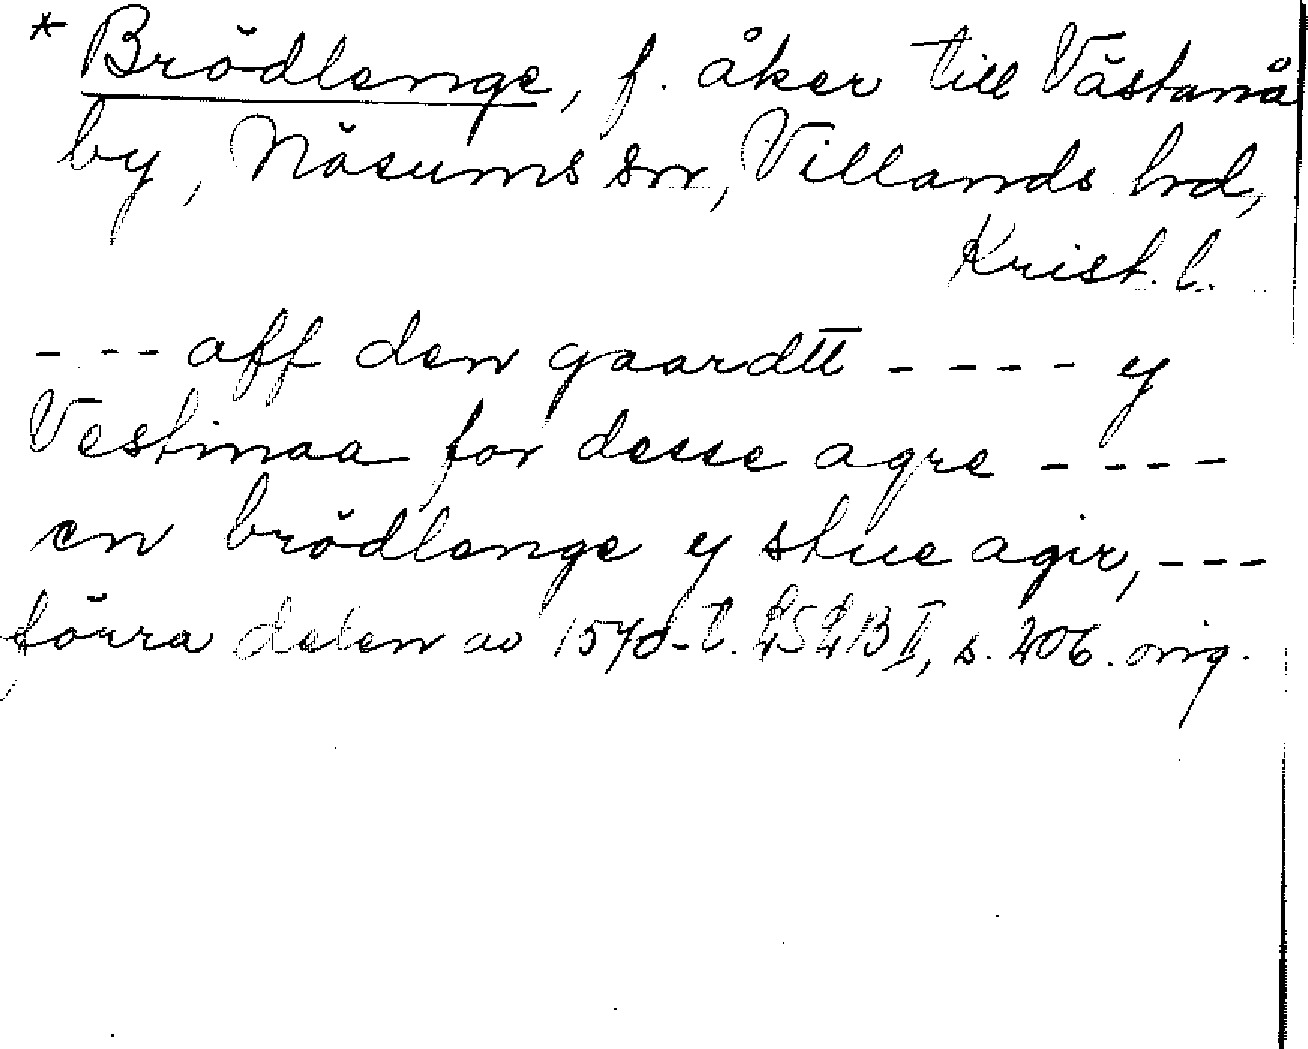 * Brödlenge, f. åker till Västanå
by, Näsums sn, Villands hd,
Krist. l.
- -- aff den gaardtt ---- y
Vestinaa for desse agre ----
en brödlenge y stue agir, ---
förra delen av 1570-t. LSLB II, s. 206. orig.